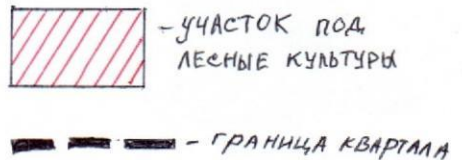 - УЧАСТОК ПОД
ЛЕСНЫЕ КУЛЬТУРЫ
- ГРАНИЦА КВАРТАЛА